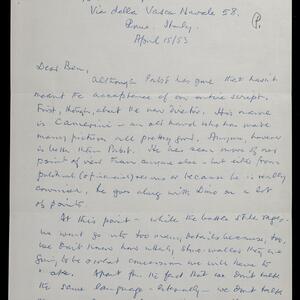 Via della Vasca Navale 58.
Rome. Italy.
April 15/53
P.
Dear Ben,
Although Pabst has gone that hasn't
meant the acceptance of our entire script.
First, though, about the new director. His name
is Camerini - an old hand who has made
many pictures, all pretty good. Anyone, however
is better than Pabst. He has seen more of our
point of view than anyone else - but either from
political (of inaction) reasons or because he is really
convinced, he goes along with Dino on a lot
of points.
At this point - while the battle still rages -
we won't go into too many details because, too,
we don't know how whally
going to be or what concessions we will have to
make. Apart from the fact that we don't talk
the same language - literally - we don't talk